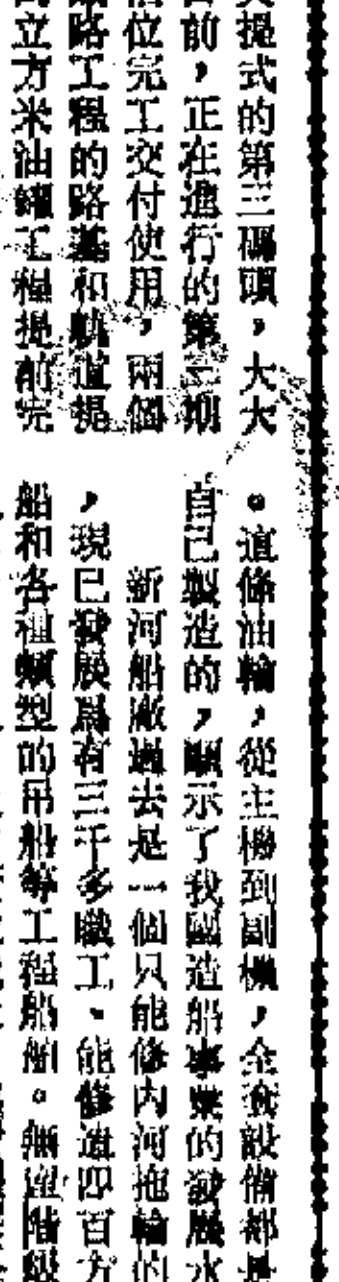 提式的第三碼頭，大大
前，正在進行的第二期
位完工交付使用，兩個
路工程的路基和軌道提
立方米油罐工程提前完
。這條油輪，從主機到副機，全套設備都是
自己製造的，顯示了我國造船事業的發展水
新河船廠過去是一個只能修內河拖輪的
，現已發展爲有三千多職工、能修造四百方
船和各種類型的吊船等工程船舶。無產階級